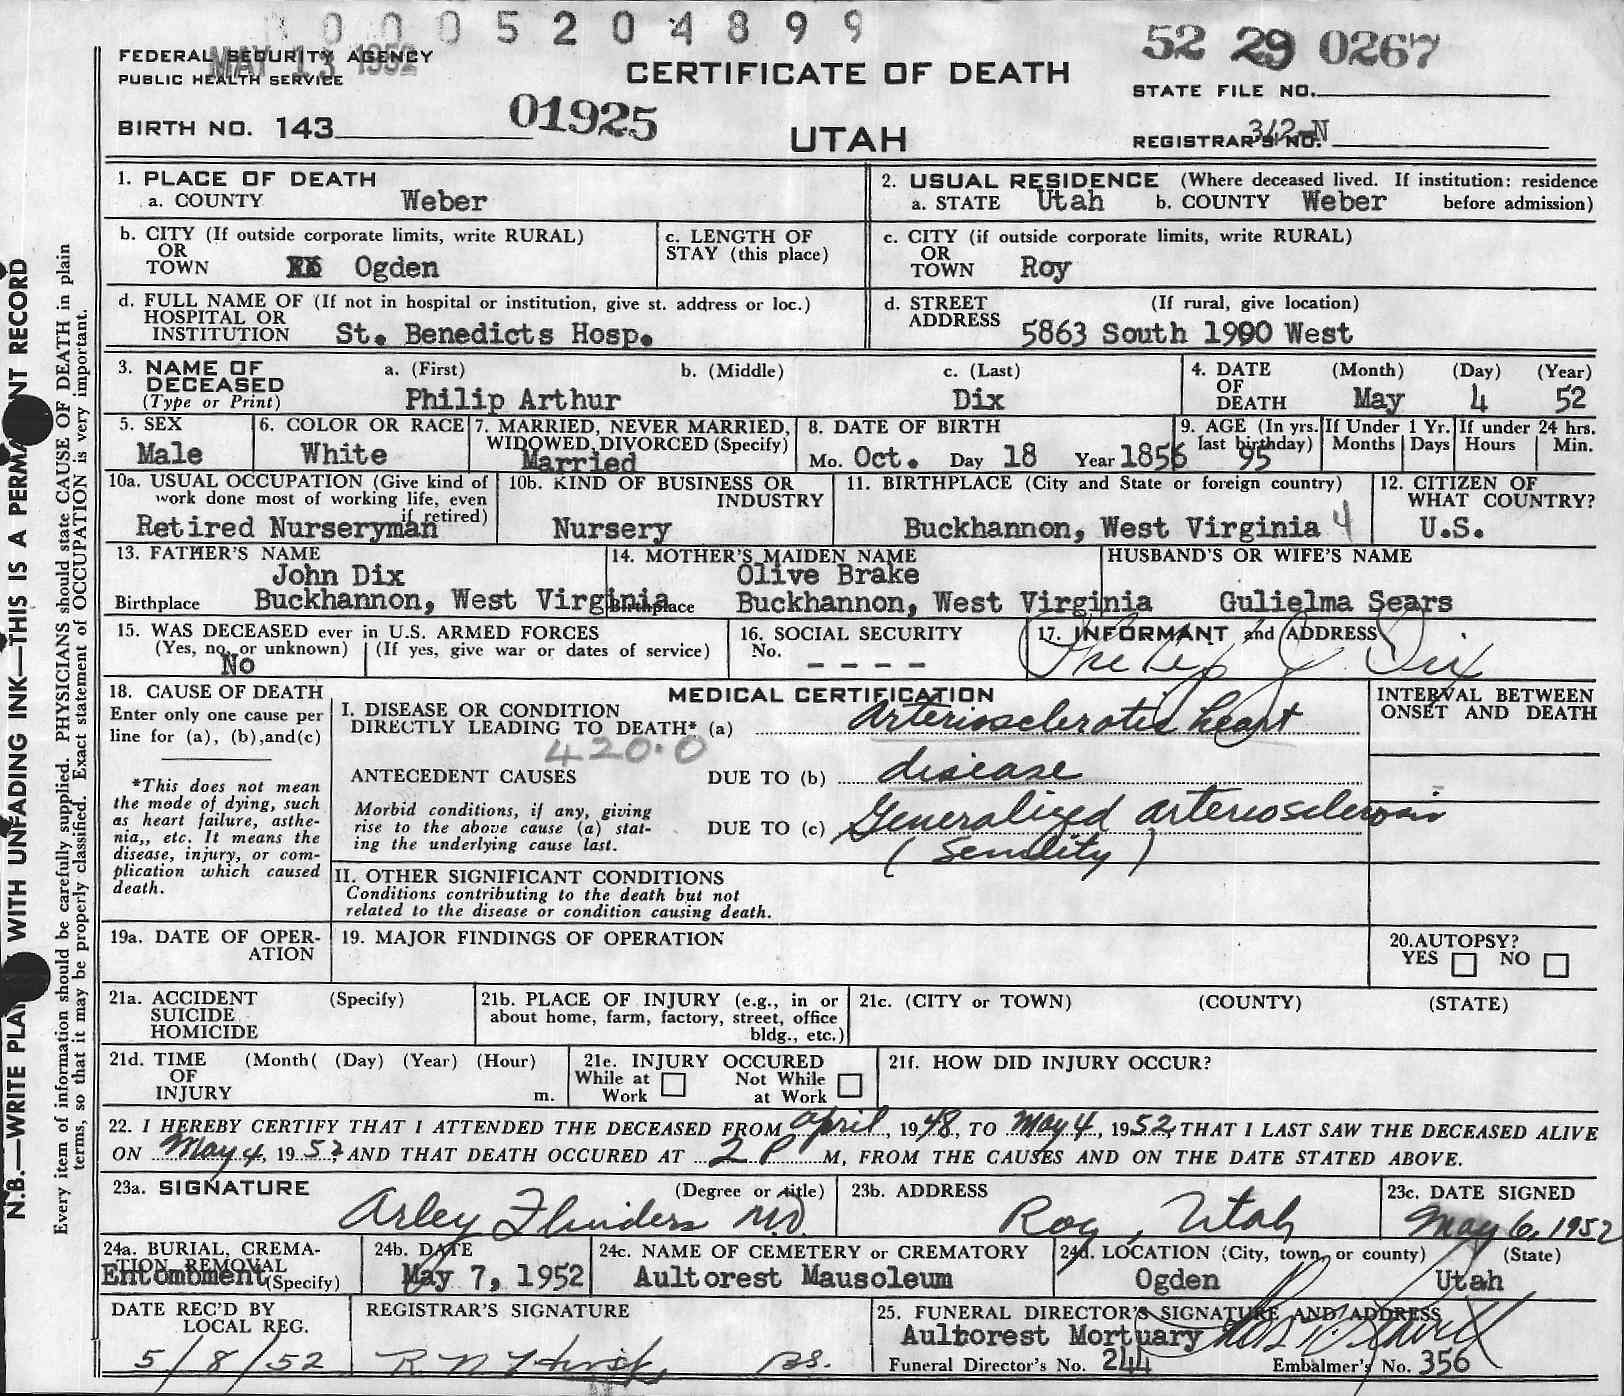 0005204899
52 29 0267
FEDERAL SECURITY AGENCY
MAY 13 1952
PUBLIC HEALTH SERVICE
CERTIFICATE OF DEATH
STATE FILE NO.
BIRTH NO. 143
01925
UTAH
REGISTRAR'S NO. 312-N
1. PLACE OF DEATH
a. COUNTY Weber
2. USUAL RESIDENCE (Where deceased lived. If institution: residence
a. STATE Utah b. COUNTY Weber before admission)
b. CITY (If outside corporate limits, write RURAL)
OR
TOWN Ogden
c. LENGTH OF
STAY (this place)
c. CITY (if outside corporate limits, write RURAL)
OR
TOWN Roy
d. FULL NAME OF (If not in hospital or institution, give st. address or loc.)
HOSPITAL OR
INSTITUTION St. Benedicts Hosp.
d. STREET (If rural, give location)
ADDRESS
5863 South 1900 West
3. NAME OF
DECEASED
(Type or Print)
a. (First) b. (Middle) c. (Last)
Philip Arthur Dix
4. DATE
OF
DEATH
(Month) (Day) (Year)
May 4 52
5. SEX
Male
6. COLOR OR RACE
White
7. MARRIED, NEVER MARRIED,
WIDOWED, DIVORCED (Specify)
Married
8. DATE OF BIRTH
Mo. Oct. Day 18 Year 1856
9. AGE (In yrs.
last birthday)
95
If Under 1 Yr.
Months Days
If under 24 hrs.
Hours Min.
10a. USUAL OCCUPATION (Give kind of
work done most of working life, even
if retired)
Retired Nurseryman
10b. KIND OF BUSINESS OR
INDUSTRY
Nursery
11. BIRTHPLACE (City and State or foreign country)
Buckhannon, West Virginia 4
12. CITIZEN OF
WHAT COUNTRY?
U.S.
13. FATHER'S NAME
John Dix
Birthplace Buckhannon, West Virginia
14. MOTHER'S MAIDEN NAME
Olive Brake
Birthplace Buckhannon, West Virginia
HUSBAND'S OR WIFE'S NAME
Gulielma Sears
15. WAS DECEASED ever in U.S. ARMED FORCES
(Yes, no, or unknown) (If yes, give war or dates of service)
No
16. SOCIAL SECURITY
No.
- - - -
17. INFORMANT and ADDRESS
Philip J. Dix
18. CAUSE OF DEATH
Enter only one cause per
line for (a), (b),and(c)
*This does not mean
the mode of dying, such
as heart failure, asthe-
nia,, etc. It means the
disease, injury, or com-
plication which caused
death.
MEDICAL CERTIFICATION
I. DISEASE OR CONDITION
DIRECTLY LEADING TO DEATH* (a) Arteriosclerotic heart
420.0
ANTECEDENT CAUSES DUE TO (b) disease
Morbid conditions, if any, giving
rise to the above cause (a) stat-
ing the underlying cause last.
DUE TO (c) Generalized arteriosclerosis
(Senility)
INTERVAL BETWEEN
ONSET AND DEATH
II. OTHER SIGNIFICANT CONDITIONS
Conditions contributing to the death but not
related to the disease or condition causing death.
19a. DATE OF OPER-
ATION
19. MAJOR FINDINGS OF OPERATION
20.AUTOPSY?
YES NO
21a. ACCIDENT (Specify)
SUICIDE
HOMICIDE
21b. PLACE OF INJURY (e.g., in or
about home, farm, factory, street, office
bldg., etc.)
21c. (CITY or TOWN) (COUNTY) (STATE)
21d. TIME (Month( (Day) (Year) (Hour)
OF
INJURY m.
21e. INJURY OCCURED
While at Not While
Work at Work
21f. HOW DID INJURY OCCUR?
22. I HEREBY CERTIFY THAT I ATTENDED THE DECEASED FROM April, 1948, TO May 4, 1952, THAT I LAST SAW THE DECEASED ALIVE
ON May 4, 1952, AND THAT DEATH OCCURED AT 2 P M, FROM THE CAUSES AND ON THE DATE STATED ABOVE.
23a. SIGNATURE (Degree or title)
Arley Flinders MD
23b. ADDRESS
Roy, Utah
23c. DATE SIGNED
May 6, 1952
24a. BURIAL, CREMA-
TION REMOVAL
Entombment (Specify)
24b. DATE
May 7, 1952
24c. NAME OF CEMETERY or CREMATORY
Aultorest Mausoleum
24d. LOCATION (City, town, or county) (State)
Ogden Utah
DATE REC'D BY
LOCAL REG.
5/8/52
REGISTRAR'S SIGNATURE
25. FUNERAL DIRECTOR'S SIGNATURE AND ADDRESS
Aultorest Mortuary
Funeral Director's No. 244 Embalmer's No. 356
N.B.—WRITE PLAINLY WITH UNFADING INK—THIS IS A PERMANENT RECORD
Every item of information should be carefully supplied. PHYSICIANS should state CAUSE OF DEATH in plain
terms, so that it may be properly classified. Exact statement of OCCUPATION is very important.